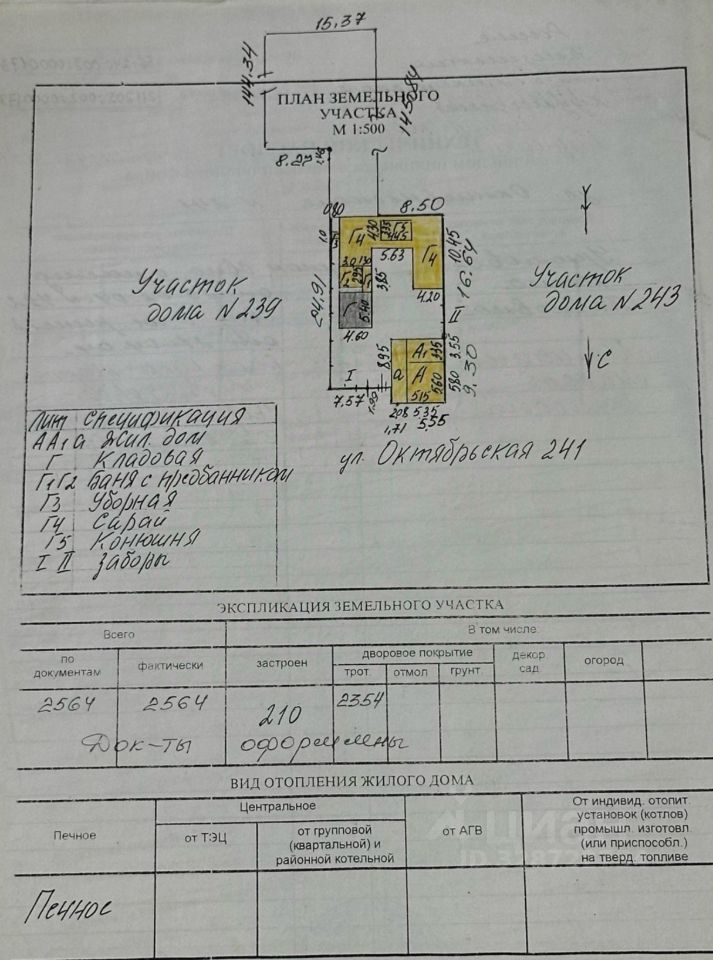 15.37
144.34
145.84
ПЛАН ЗЕМЕЛЬНОГО
УЧАСТКА
М 1:500
8.27
8.50
Г4
Г5
4.45
4.30
10.45
1.0
Г3
5.63
Г4
16.64
3.0
Г2
Г1
3.85
4.20
II
24.91
Г
5.40
4.60
Участок
дома N 239
Участок
дома N 243
С
8.95
А1
3.35
3.55
а
А
5.60
5.80
9.30
I
5.15
7.57
1.90
2.08
5.35
1,71
5.55
ул. Октябрьская 241
Лит спецификация
А А1 а Жил. дом
Г Кладовая
Г1 Г2 Баня с предбанником
Г3 Уборная
Г4 Сарай
Г5 Конюшня
I II Заборы
ЭКСПЛИКАЦИЯ ЗЕМЕЛЬНОГО УЧАСТКА
Всего
В том числе
по документам
фактически
застроен
дворовое покрытие
трот.
отмол
грунт.
декор. сад.
огород
2564
2564
210
2354
Док-ты оформлены
ВИД ОТОПЛЕНИЯ ЖИЛОГО ДОМА
Печное
Центральное
от ТЭЦ
от групповой
(квартальной) и
районной котельной
от АГВ
От индивид. отопит.
установок (котлов)
промышл. изготовл.
(или приспособл.)
на тверд. топливе
Печное